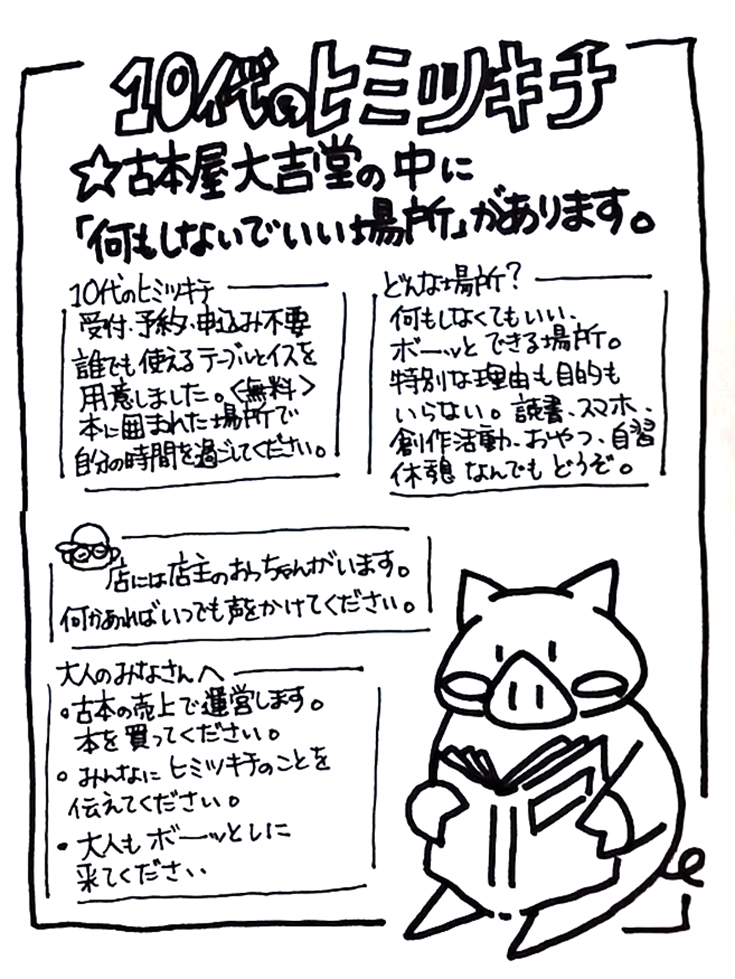 10代のヒミツキチ
☆古本屋大吉堂の中に
「何もしないでいい場所」があります。
10代のヒミツキチ
受付、予約、申込み不要
誰でも使えるテーブルとイスを
用意しました。<無料>
本に囲まれた場所で
自分の時間を過ごしてください。
どんな場所?
何もしなくてもいい、
ボーッとできる場所。
特別な理由も目的も
いらない。読書、スマホ、
創作活動、おやつ、自習
休憩 なんでも どうぞ。
店には店主のおっちゃんがいます。
何かあればいつでも声をかけてください。
大人のみなさんへ
○古本の売上で運営します。
本を買ってください。
○みんなに ヒミツキチのことを
伝えてください。
・大人も ボーッとしに
来てください